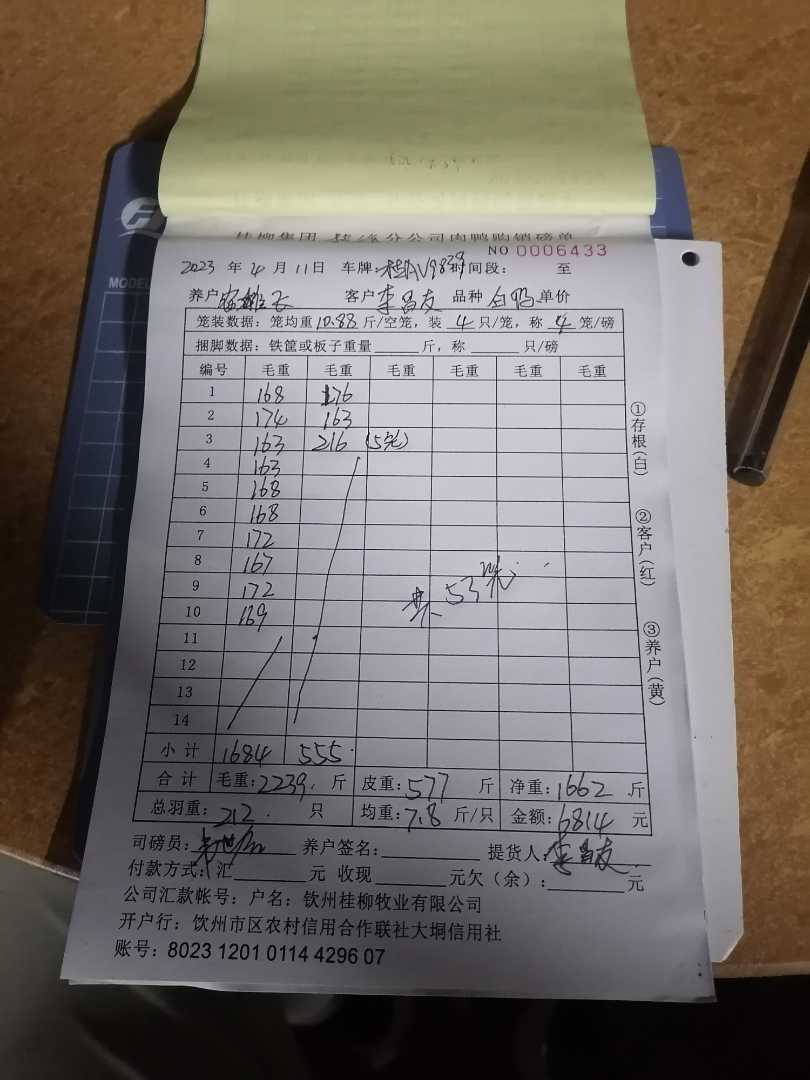 桂柳集团 分公司肉鸭购销磅单
NO 0006433
2023 年 4 月 11 日 车牌:桂AV9839 时间段: 至
养户 客户 李昌友 品种 白鸭 单价
笼装数据:笼均重 10.88 斤/空笼,装 4 只/笼,称 4 笼/磅
捆脚数据:铁筐或板子重量 斤,称 只/磅
编号 毛重 毛重 毛重 毛重 毛重 毛重
1 168 176
2 174 163
3 163 216 (5笼)
4 163
5 168
6 168
7 172
8 167
9 172
10 169
共53笼
11
12
13
14
小计 1684 555
合计 毛重:2239 斤 皮重:577 斤 净重:1662 斤
总羽重:212 只 均重:7.8 斤/只 金额:6814 元
司磅员: 养户签名: 提货人:李昌友
付款方式:汇 元 收现 元欠(余): 元
公司汇款帐号:户名:钦州桂柳牧业有限公司
开户行:钦州市区农村信用合作联社大垌信用社
账号:8023 1201 0114 4296 07
①存根(白)
②客户(红)
③养户(黄)
MODEL